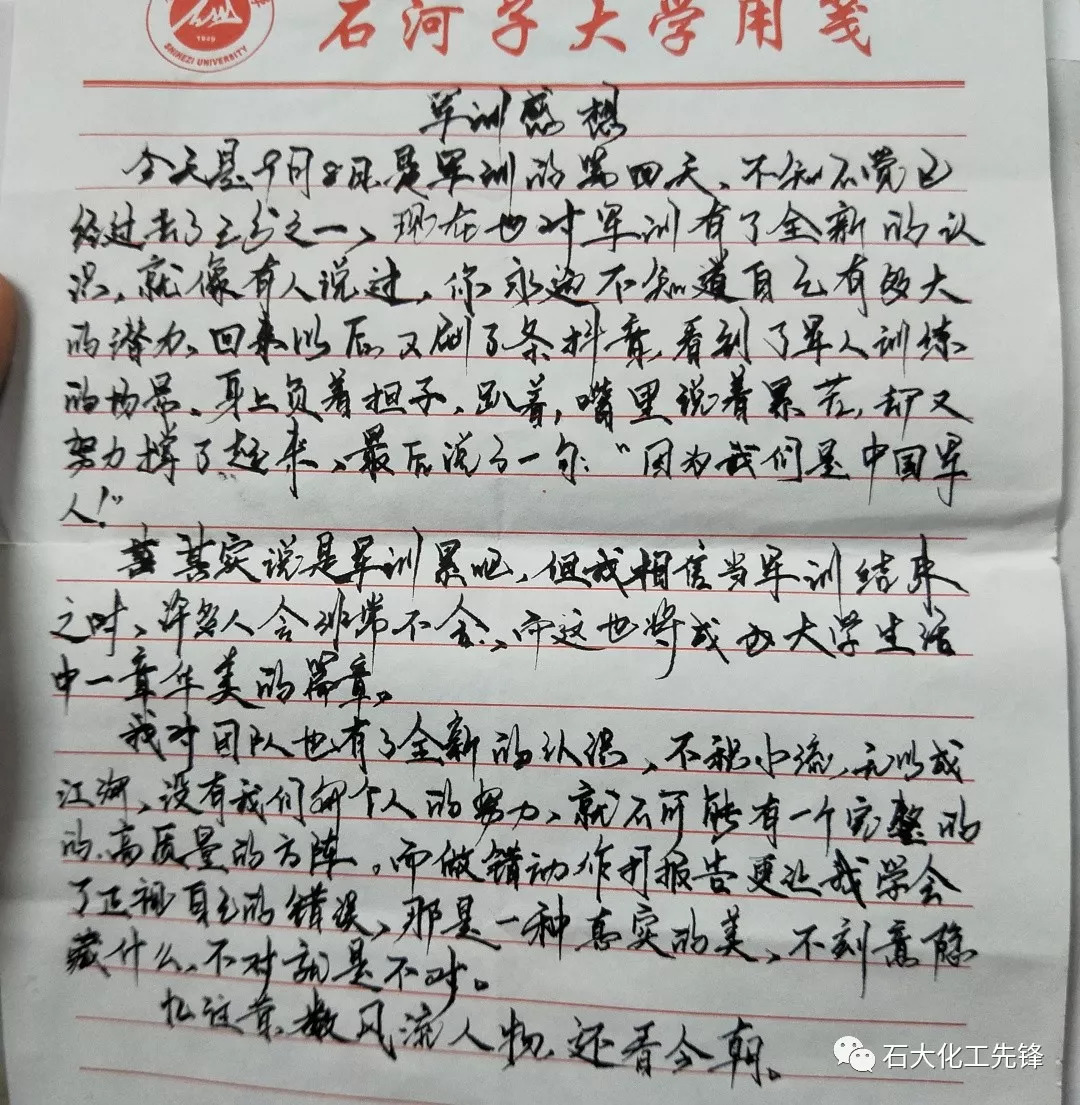 1949
SHIHEZI UNIVERSITY
石河子大学用笺
军训感想
今天是9月8日是军训的第四天、不知不觉已
经过去了三分之一、现在也对军训有了全新的认
识,就像有人说过,你永远不知道自己有多大
的潜力、回来以后又刷了条抖音,看到了军人训练
的场景、身上负着担子、趴着,嘴里说着累苦,却又
努力撑了起来、最后说了一句:“因为我们是中国军
人!”
其实说是军训累吧、但我相信当军训结束
之时、许多人会非常不舍、而这也将成为大学生活
中一章华美的篇章。
我对团队也有了全新的认识、不积小流,无以成
江河、没有我们每个人的努力、就不可能有一个完整的
的、高质量的方阵。而做错动作打报告更让我学会
了正视自己的错误、那是一种真实的美、不刻意隐
藏什么、不对就是不对。
忆往昔、数风流人物、还看今朝。
石大化工先锋